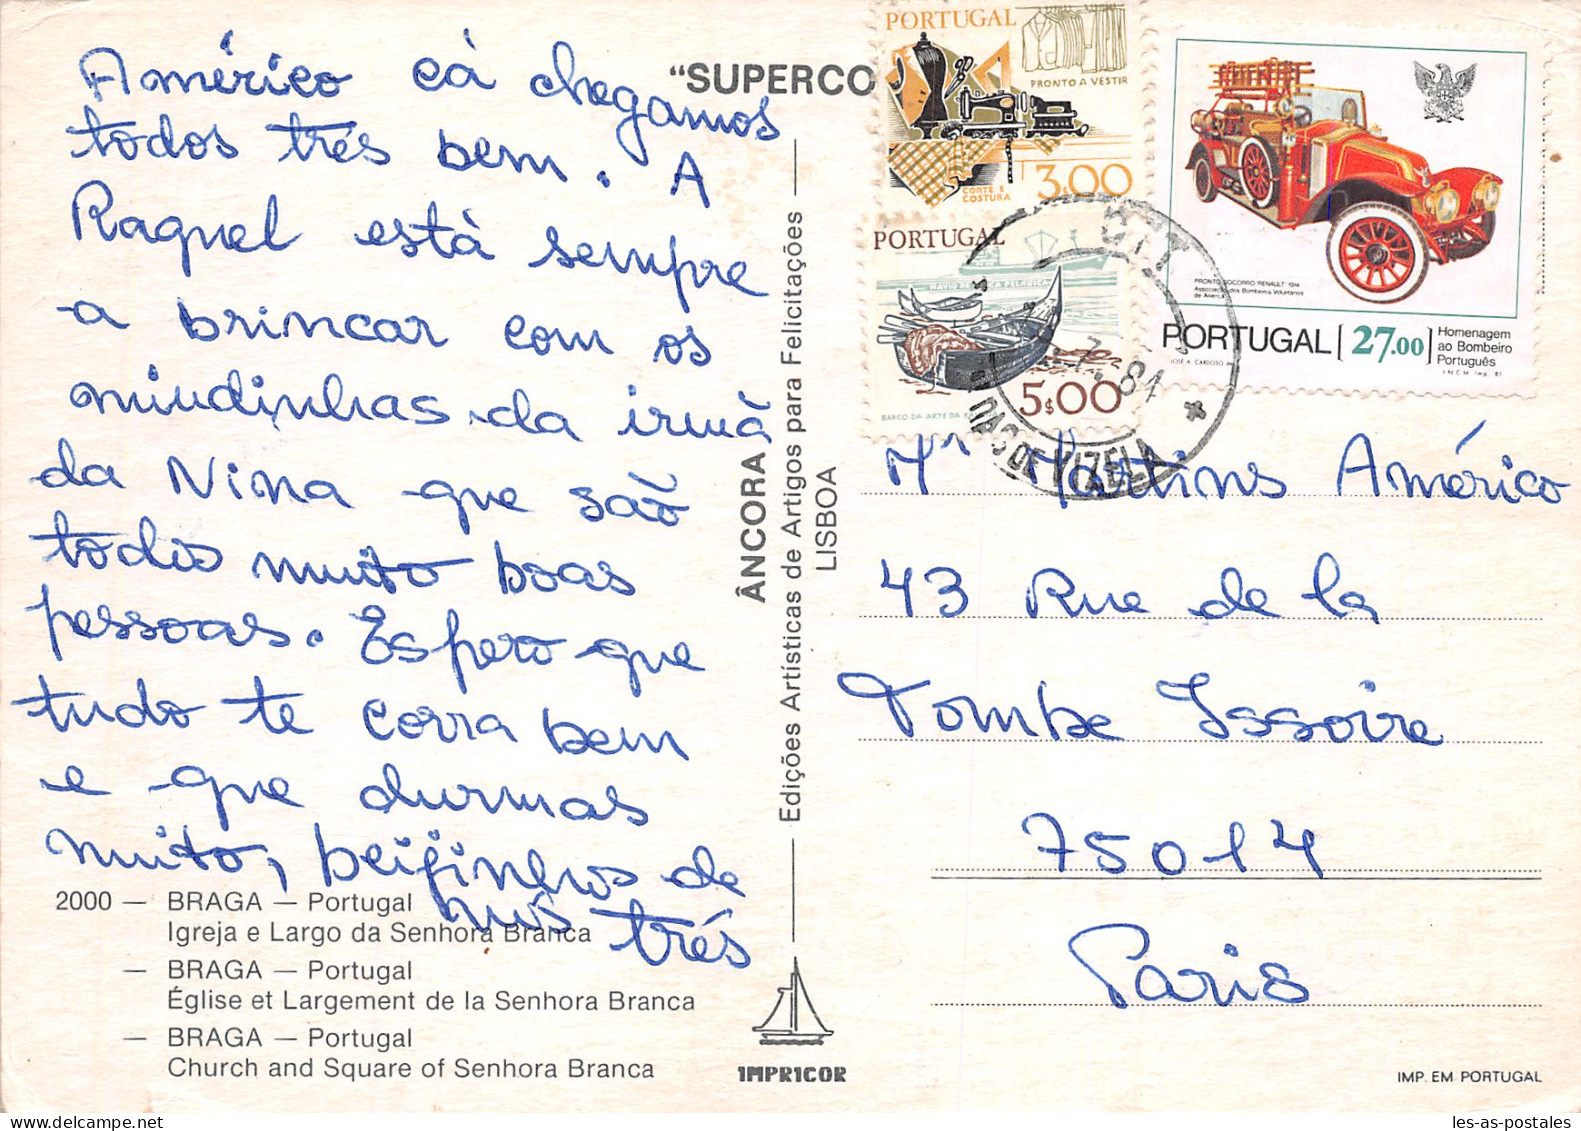 Américo cá chegamos
todos três bem. A
Raquel está sempre
a brincar com os
miudinhas da irmã
da Nina que são
todos muito boas
pessoas. Espero que
tudo te corra bem
e que durmas
muito, beijinhos de
nós três
2000 — BRAGA — Portugal
Igreja e Largo da Senhora Branca
— BRAGA — Portugal
Église et Largement de la Senhora Branca
— BRAGA — Portugal
Church and Square of Senhora Branca
"SUPERCO
ÂNCORA
Edições Artísticas de Artigos para Felicitações
LISBOA
IMPRICOR
PORTUGAL
PRONTO A VESTIR
CORTE E
COSTURA
3.00
PORTUGAL
5$00
BARCO DA ARTE DA
PRONTO SOCORRO "RENAULT" 1914
Associação dos Bombeiros Voluntários
PORTUGAL 27.00
Homenagem
ao Bombeiro
Português
JOSÉ A. CARDOSO
INCM Imp. 81
CTT
7. 81
DAS DE VIZELA
Mr Martins Américo
43 Rue de la
Tombe Issoire
75014
Paris
IMP. EM PORTUGAL
les-as-postales